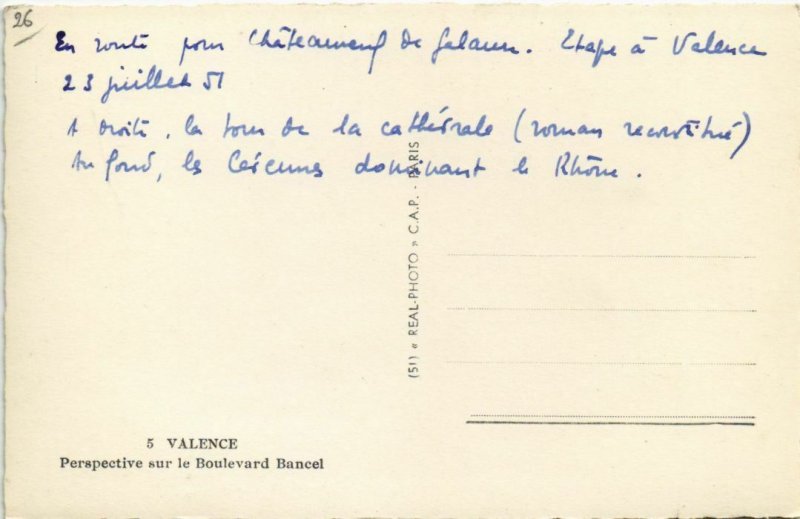 26
En route pour Châteauneuf de Galaure. Etape à Valence
23 juillet 51
A droite, la tour de la cathédrale (roman reconstitué)
Au fond, les Cévennes dominant le Rhône.
(51) « REAL-PHOTO » C.A.P. - PARIS
5 VALENCE
Perspective sur le Boulevard Bancel